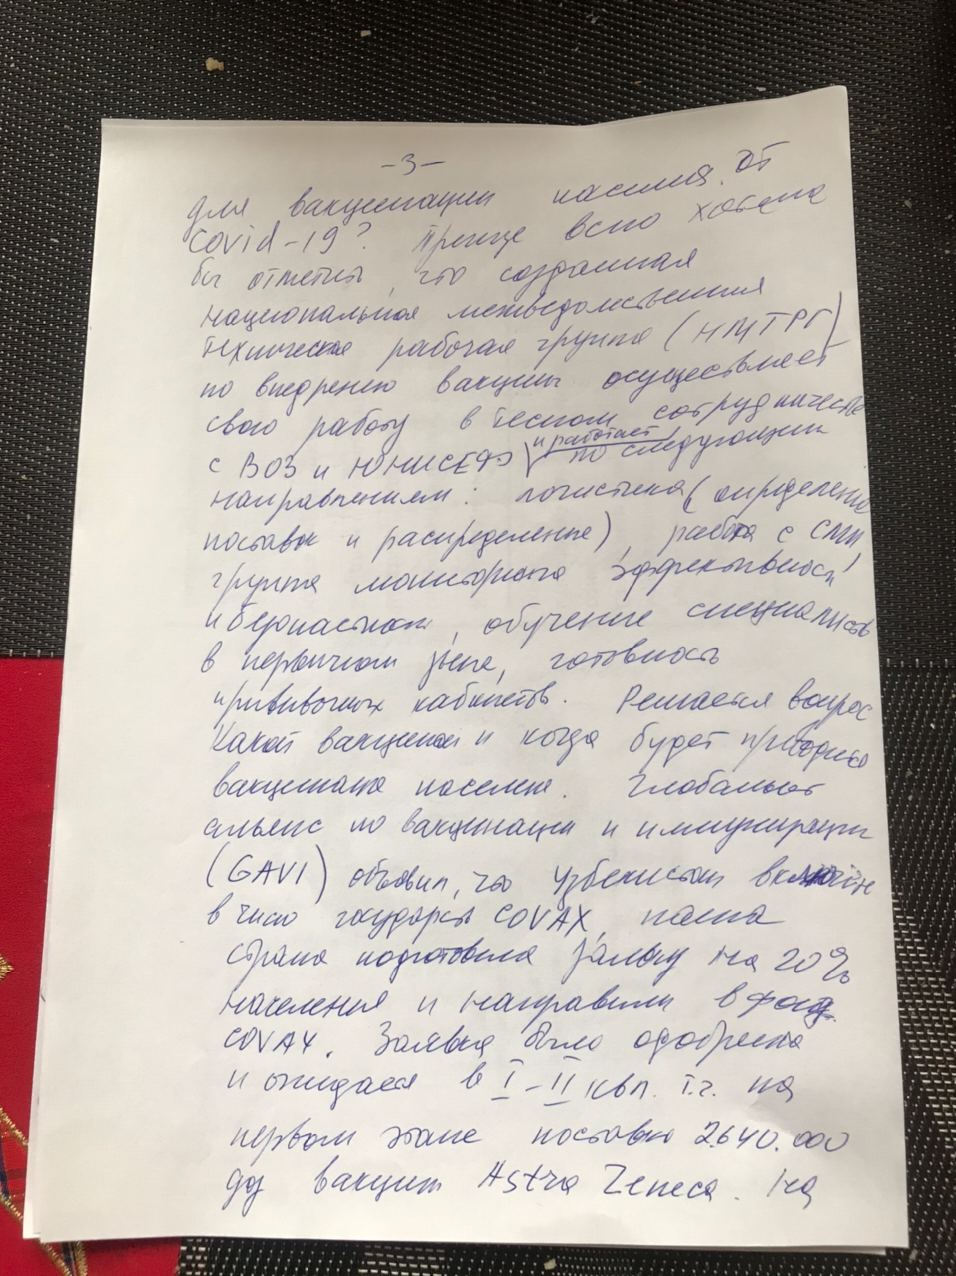 -3-
для вакцинации населия от
Covid-19? Прежде всего хотела
бы отметить, что созданная
национальная межведомственная
техническая рабочая группа (НМТРГ)
по внедрению вакцин осуществляет
свою работу в тесном сотрудничестве
с ВОЗ и ЮНИСЕФ и работает по следующим
направлениям: логистика (определение
поставок и распределение), работа с СМИ,
группа мониторинга эффективности
и безопасности, обучение специалистов
в первичном звене, готовность
прививочных кабинетов. Решается вопрос
какой вакциной и когда будет
вакцинация населения. Глобальный
альянс по вакцинации и иммунизации
(GAVI) объявил, что Узбекистан включён
в число государств COVAX, наша
страна подготовила заявку на 20%
населения и направили в фонд
COVAX. Заявка была одобрена
и ожидаем в I-II квл. т.г. на
первом этапе поставку 2.640.000
доз вакцин Astra Zeneca. На